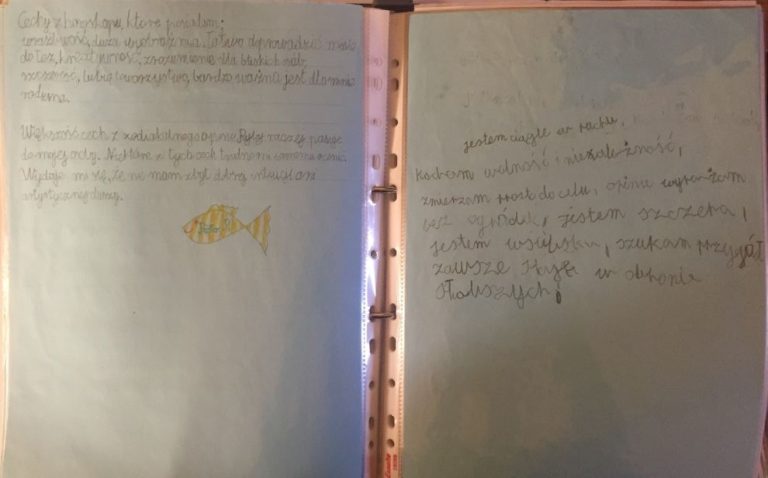 Cechy z horoskopu, które posiadam:
wrażliwość, duża wyobraźnia, łatwo doprowadzić mnie
do łez, kreatywność, zrozumienie dla bliskich osób,
szczerość, lubię towarzystwo, bardzo ważna jest dla mnie
rodzina.
Większość cech z zodiakalnego opisu Ryby raczej pasuje
do mojej osoby. Niektóre z tych cech trudno mi samemu ocenić.
Wydaje mi się, że nie mam zbyt dobrej
artystycznej duszy.
jestem ciągle w ruchu,
Kocham wolność i niezależność,
zmierzam prosto do celu, opinie wyrażam
bez ogródek, jestem szczera,
jestem szukam przyjaźni
zawsze staję w obronie
słabszych,